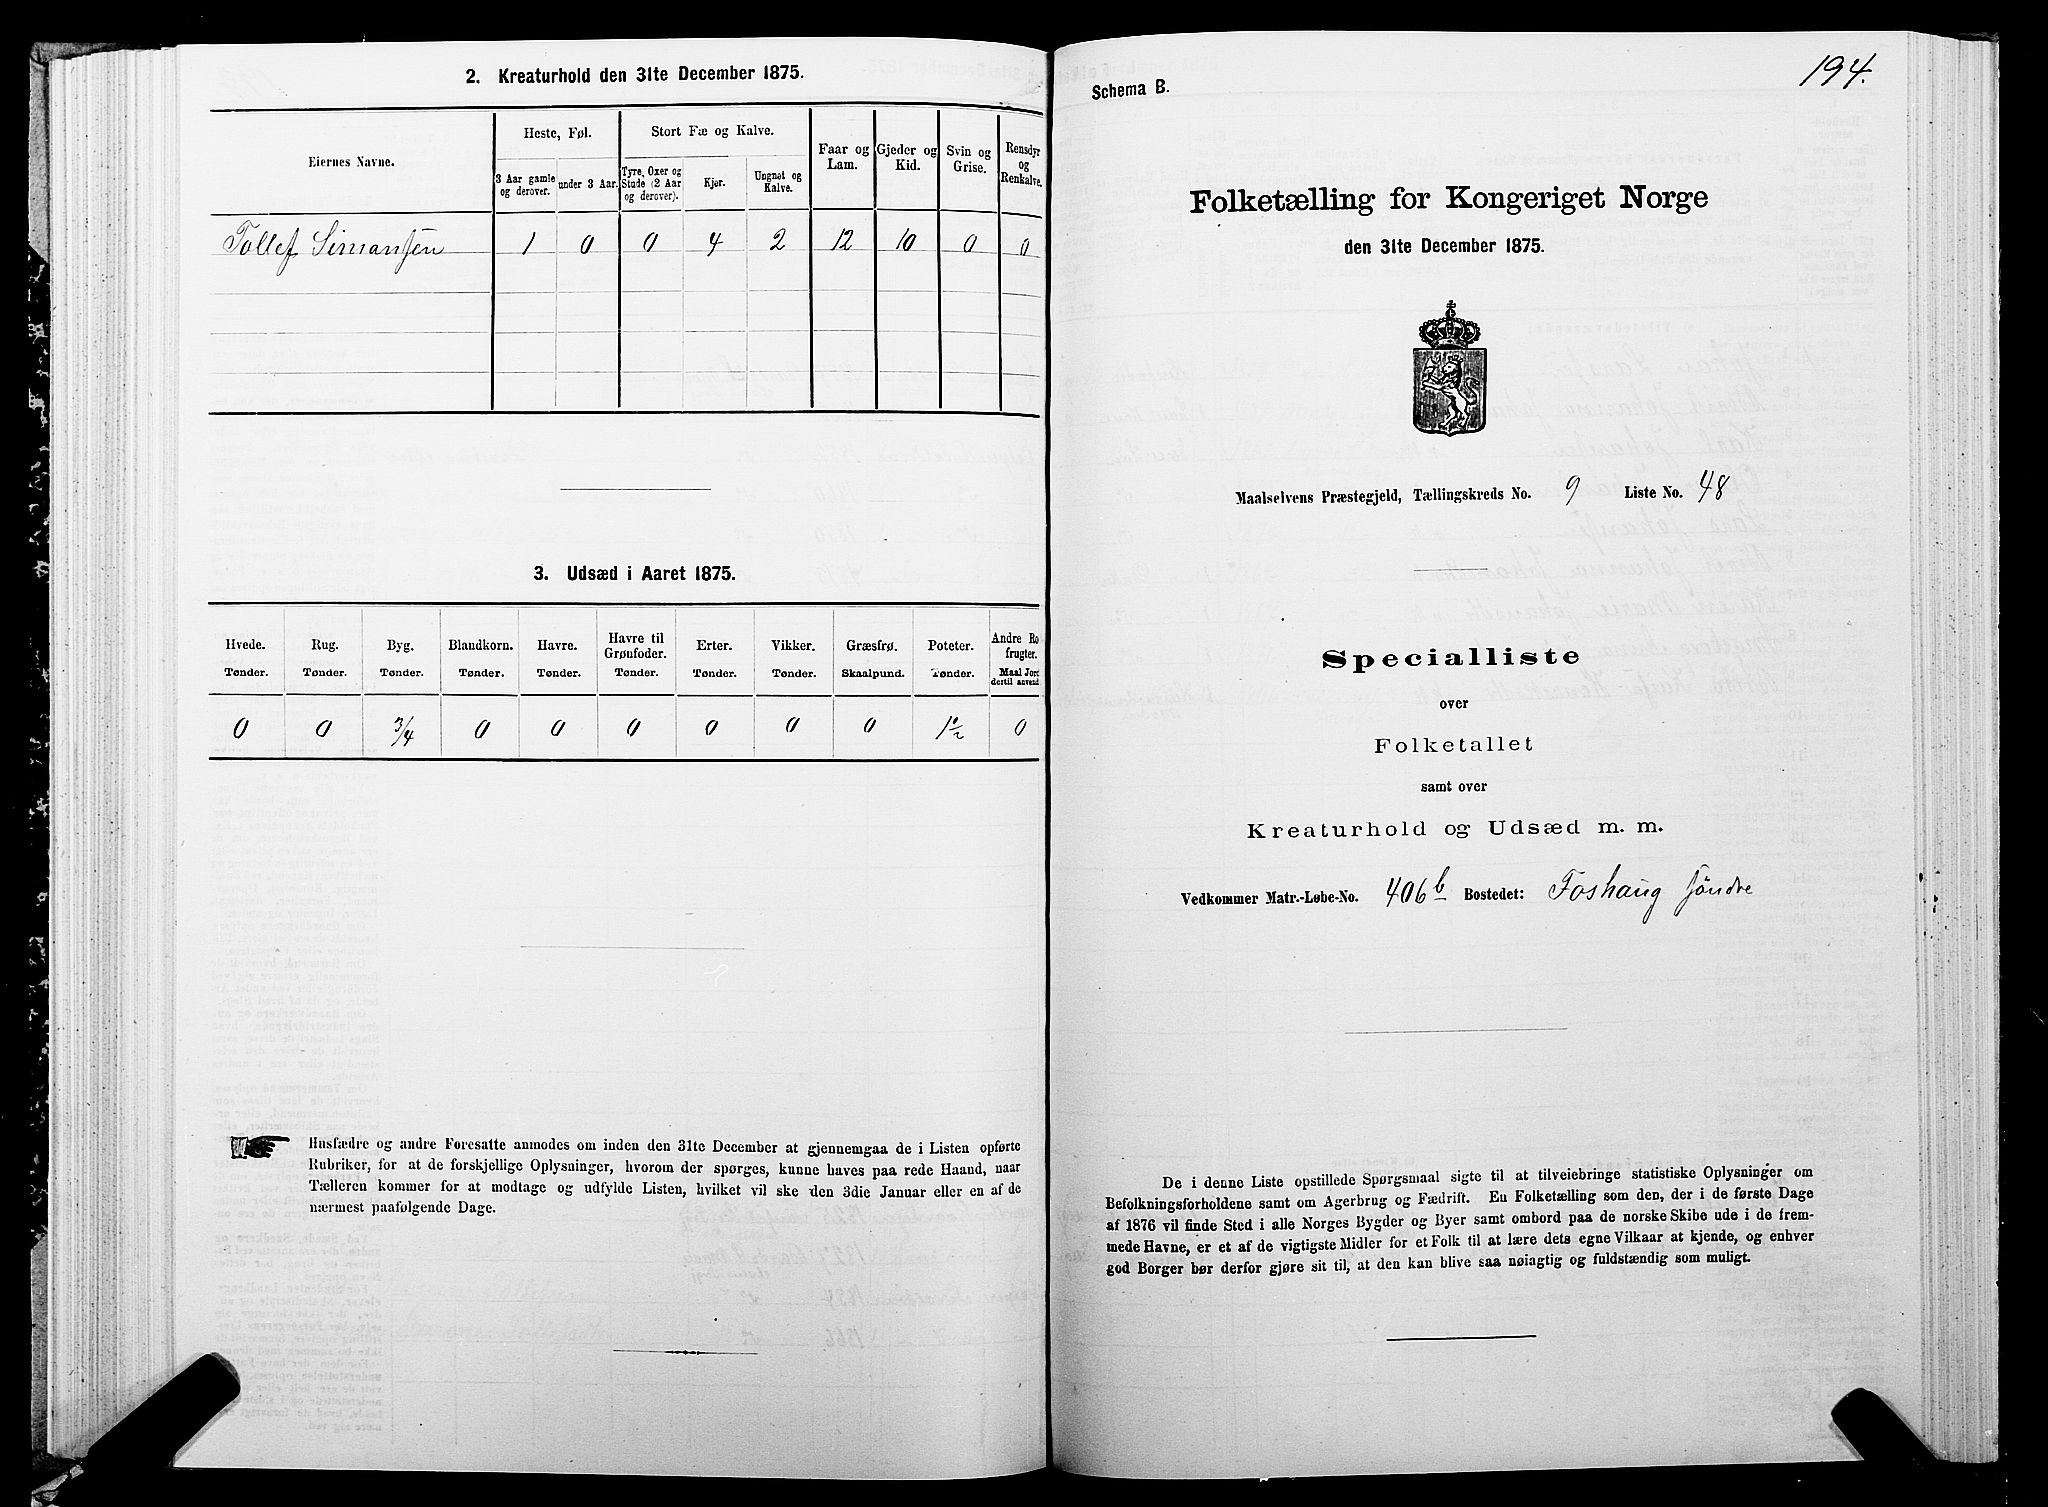 2. Kreaturhold den 31te December 1875.
Eiernes Navne.
Heste, Føl.
Stort Fæ og Kalve.
Faar og Lam.
Gjeder og Kid.
Svin og Grise.
Rensdyr og Renkalve.
3 Aar gamle og derover.
under 3 Aar.
Tyre, Oxer og Stude (2 Aar og derover).
Kjør.
Ungnøt og Kalve.
Tollef Simonsen 1 0 0 4 2 12 10 0 0
3. Udsæd i Aaret 1875.
Hvede. Rug. Byg. Blandkorn. Havre. Havre til Grønfoder. Erter. Vikker. Græsfrø. Poteter. Andre Ro frugter.
Tønder. Tønder. Tønder. Tønder. Tønder. Tønder. Tønder. Tønder. Skaalpund. Tønder. Maal Jord dertil anvend
0 0 3/4 0 0 0 0 0 0 1 1/2 0
Husfædre og andre Foresatte anmodes om inden den 31te December at gjennemgaa de i Listen opførte
Rubriker, for at de forskjellige Oplysninger, hvorom der spørges, kunne haves paa rede Haand, naar
Tælleren kommer for at modtage og udfylde Listen, hvilket vil ske den 3die Januar eller en af de
nærmest paafølgende Dage.
194.
Schema B.
Folketælling for Kongeriget Norge
den 31te December 1875.
Maalselvens Præstegjeld, Tællingskreds No. 9 Liste No. 48
Specialliste
over
Folketallet
samt over
Kreaturhold og Udsæd m. m.
Vedkommer Matr.-Løbe-No. 406b Bostedet: Foshaug söndre
De i denne Liste opstillede Spørgsmaal sigte til at tilveiebringe statistiske Oplysninger om
Befolkningsforholdene samt om Agerbrug og Fædrift. En Folketælling som den, der i de første Dage
af 1876 vil finde Sted i alle Norges Bygder og Byer samt ombord paa de norske Skibe ude i de frem-
mede Havne, er et af de vigtigste Midler for et Folk til at lære dets egne Vilkaar at kjende, og enhver
god Borger bør derfor gjøre sit til, at den kan blive saa nøiagtig og fuldstændig som muligt.